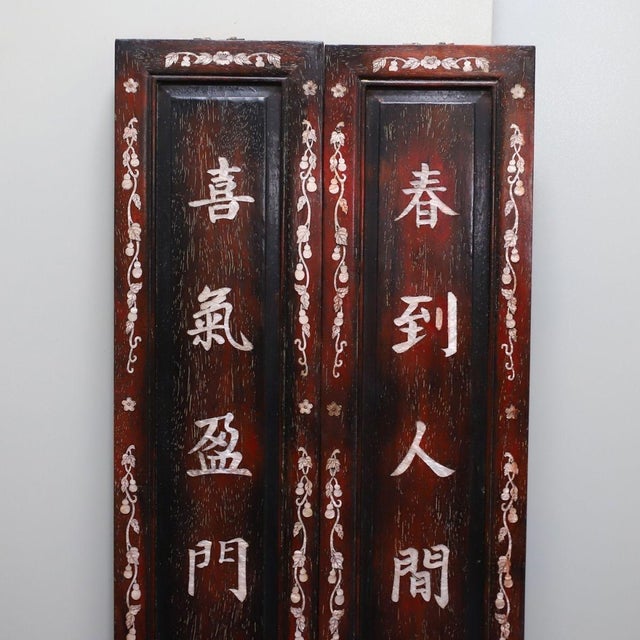 春到人間
喜氣盈門